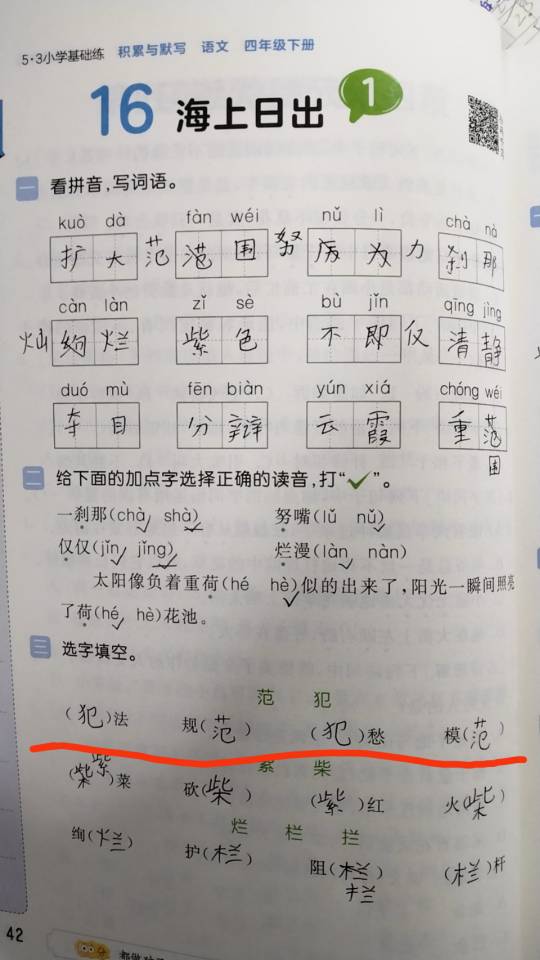 5·3小学基础练 积累与默写 语文 四年级下册
16 海上日出 1
一 看拼音,写词语。
kuò dà fàn wéi nǔ lì chà nà
扩大 范围 努 力 刹那
càn làn zǐ sè bù jǐn qīng jìng
灿绚烂 紫色 不即仅 清静
duó mù fēn biàn yún xiá chóng wéi
夺目 分辩 云霞 重范
围
二 给下面的加点字选择正确的读音,打“✓”。
一刹那(chà shà) 努嘴(lǔ nǔ)
仅仅(jǐn jǐng) 烂漫(làn nàn)
太阳像负着重荷(hé hè)似的出来了,阳光一瞬间照亮
了荷(hé hè)花池。
三 选字填空。
范 犯
(犯)法 规(范) (犯)愁 模(范)
紫 柴
(柴紫)菜 砍(柴) (紫)红 火(柴)
烂 栏 拦
绚(烂) 护(栏) 阻(栏) (栏)杆
拦
42